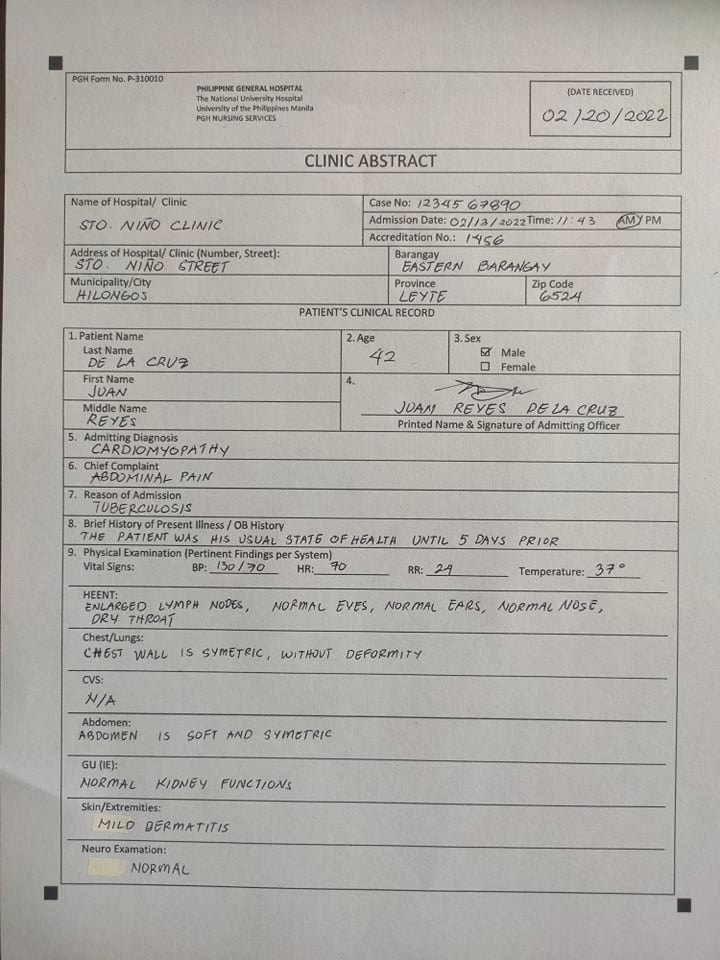 PGH Form No. P-310010
PHILIPPINE GENERAL HOSPITAL
The National University Hospital
University of the Philippines Manila
PGH NURSING SERVICES
(DATE RECEIVED)
02/20/2022
CLINIC ABSTRACT
Name of Hospital/ Clinic
STO. NIÑO CLINIC
Case No: 1234567890
Admission Date: 02/13/2022 Time: 11:43 AM/PM
Accreditation No.: 1456
Address of Hospital/ Clinic (Number, Street):
STO. NIÑO STREET
Barangay
EASTERN BARANGAY
Municipality/City
HILONGOS
Province
LEYTE
Zip Code
6524
PATIENT'S CLINICAL RECORD
1. Patient Name
Last Name
DE LA CRUZ
2. Age
42
3. Sex
Male
Female
First Name
JUAN
Middle Name
REYES
4.
JUAN REYES DE LA CRUZ
Printed Name & Signature of Admitting Officer
5. Admitting Diagnosis
CARDIOMYOPATHY
6. Chief Complaint
ABDOMINAL PAIN
7. Reason of Admission
TUBERCULOSIS
8. Brief History of Present Illness / OB History
THE PATIENT WAS HIS USUAL STATE OF HEALTH UNTIL 5 DAYS PRIOR
9. Physical Examination (Pertinent Findings per System)
Vital Signs: BP: 130/70 HR: 70 RR: 24 Temperature: 37°
HEENT:
ENLARGED LYMPH NODES, NORMAL EYES, NORMAL EARS, NORMAL NOSE,
DRY THROAT
Chest/Lungs:
CHEST WALL IS SYMETRIC, WITHOUT DEFORMITY
CVS:
N/A
Abdomen:
ABDOMEN IS SOFT AND SYMETRIC
GU (IE):
NORMAL KIDNEY FUNCTIONS
Skin/Extremities:
MILD DERMATITIS
Neuro Examation:
NORMAL